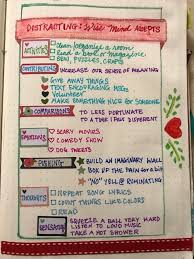 DISTRACTING! Wise Mind ACCEPTS
ACTIVITIES
clean/organize a room
read a book or magazine
PUZZLES, CRAFTS
CONTRIBUTING INCREASE OUR SENSE OF MEANING
GIVE AWAY THINGS
TEXT ENCOURAGING MSGS
VOLUNTEER
MAKE SOMETHING NICE FOR SOMEONE
COMPARISONS TO LESS FORTUNATE
TO A TIME I FELT DIFFERENT
EMOTIONS
SCARY MOVIES
COMEDY SHOW
DOG TWEETS
PUSHING BUILD AN IMAGINARY WALL
BOX UP THE PAIN for a bit
"NO" YELL @ RUMINATING
THOUGHTS
REPEAT SONG LYRICS
COUNT THINGS LIKE COLORS
READ
SQUEEZE A BALL VERY HARD
LISTEN TO LOUD MUSIC
TAKE A HOT SHOWER